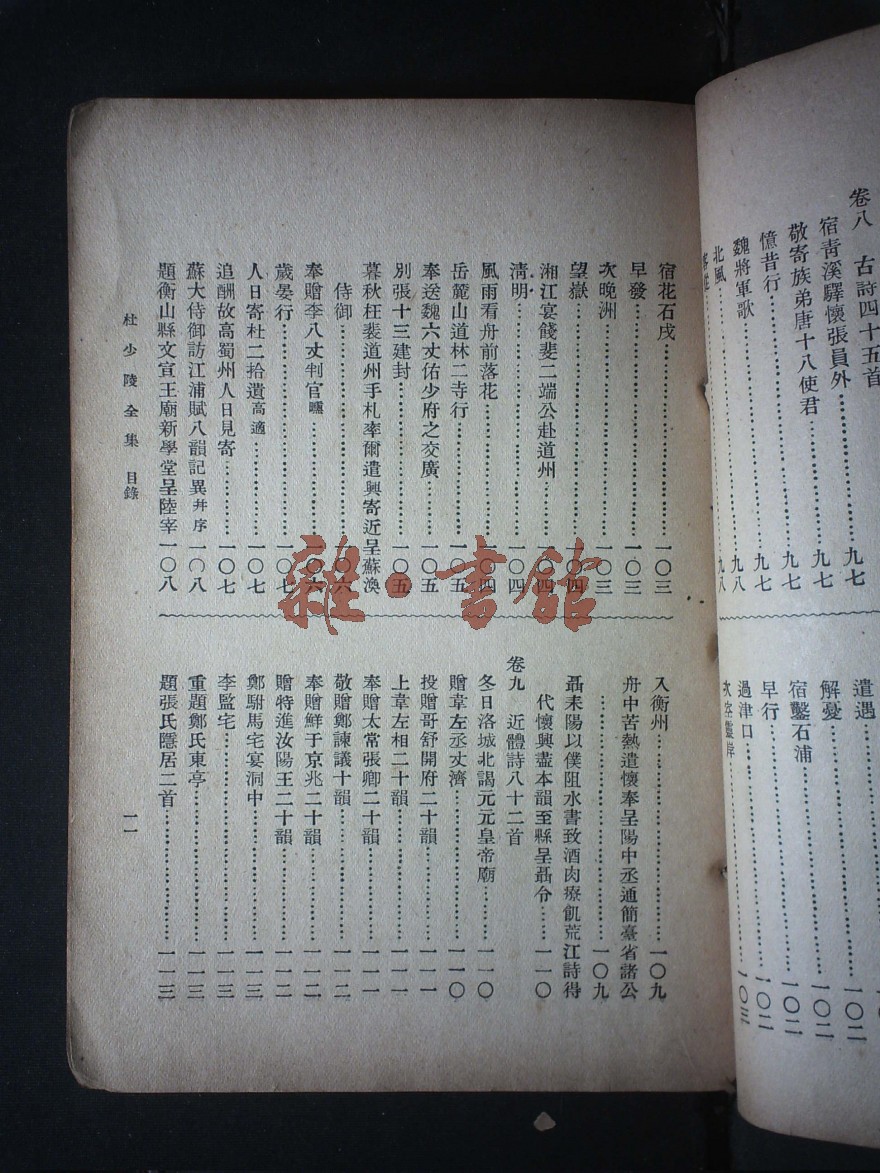 卷八 古詩四十五首
宿青溪驛懷張員外………九七
敬寄族弟唐十八使君………九七
憶昔行………九七
魏將軍歌………九八
北風………九八
遣遇
解憂………一〇二
宿鑿石浦………一〇二
早行………一〇二
過津口………一〇三
次空靈岸
宿花石戍………一〇三
早發………一〇三
次晚洲………一〇三
望嶽………一〇四
湘江宴餞裴二端公赴道州………一〇四
清明………一〇四
風雨看舟前落花………一〇四
岳麓山道林二寺行………一〇五
奉送魏六丈佑少府之交廣………一〇五
別張十三建封………一〇五
暮秋枉裴道州手札率爾遣興寄近呈蘇渙
侍御………一〇六
奉贈李八丈判官曛………一〇六
歲晏行………一〇七
人日寄杜二拾遺高適………一〇七
追酬故高蜀州人日見寄………一〇七
蘇大侍御訪江浦賦八韻記異并序………一〇八
題衡山縣文宣王廟新學堂呈陸宰一〇八
入衡州………一〇九
舟中苦熱遣懷奉呈陽中丞通簡臺省諸公
………一〇九
聶耒陽以僕阻水書致酒肉療飢荒江詩得
代懷興盡本韻至縣呈聶令………一一〇
卷九 近體詩八十二首
冬日洛城北謁元元皇帝廟………一一〇
贈韋左丞丈濟………一一〇
投贈哥舒開府二十韻………一一一
上韋左相二十韻………一一一
奉贈太常張卿二十韻………一一一
敬贈鄭諫議十韻………一一二
贈特進汝陽王二十韻………一一二
奉贈鮮于京兆二十韻………一一二
鄭駙馬宅宴洞中………一一三
李監宅………一一三
重題鄭氏東亭………一一三
題張氏隱居二首………一一三
杜少陵全集 目錄
一一
雜·書館